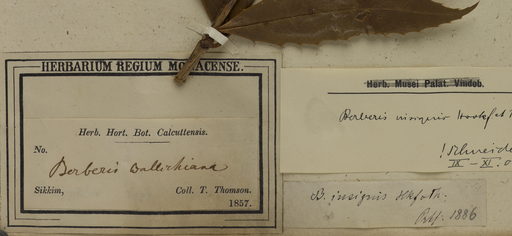 HERBARIUM REGIUM MONACENSE.
Herb. Hort. Bot. Calcuttensis.
No.
Berberis Wallichiana
Sikkim, Coll. T. Thomson.
1857.
Herb. Musei Palat. Vindob.
Berberis insignis Hook f et T
! Schneide
IX – XI.
B. insignis Hkfoth.
1886